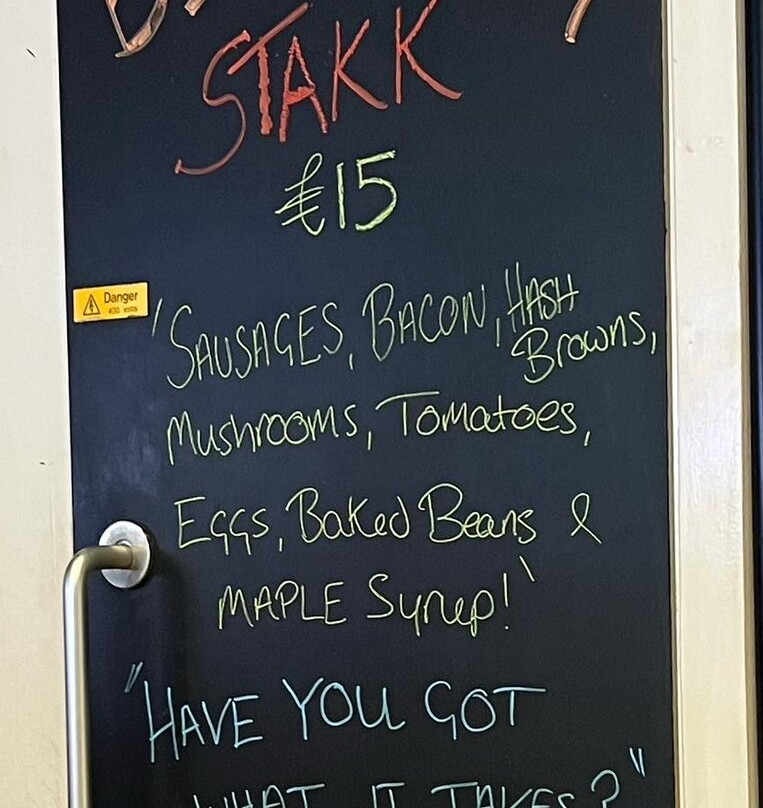 STAKK
£15
Danger
400 volts
'SAUSAGES, BACON, HASH
Browns,
Mushrooms, Tomatoes,
EGGS, Baked Beans &
MAPLE Syrup!'
"HAVE YOU GOT
WHAT IT TAKES?"